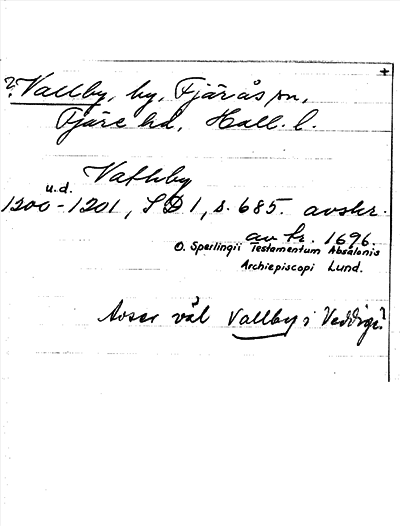 ? Vallby, by, Fjärås sn,
Fjäre hd, Hall. l.
Vathby
u.d.
1200-1201, SD 1, s. 685. avskr.
av tr. 1696.
O. Sperlingii Testamentum Absalonis
Archiepiscopi Lund.
Avser väl Vallby i Veddige?